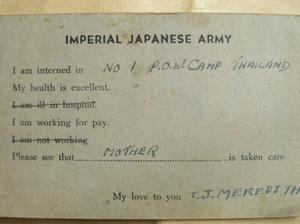 IMPERIAL JAPANESE ARMY
I am interned in No 1 P.O.W. CAMP THAILAND
My health is excellent.
I am ill in hospital.
I am working for pay.
I am not working
Please see that MOTHER is taken care
My love to you T.J. MEREDITH